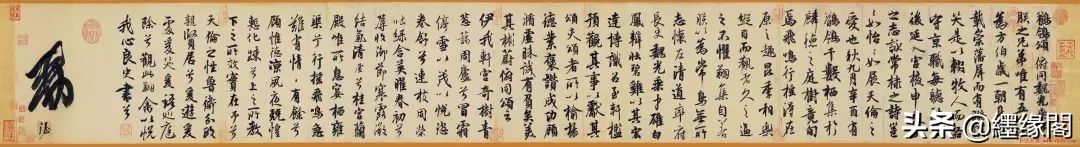 鶺鴒頌俯同魏光乘作
朕之兄弟唯有五人比
為方伯歲一朝見雖
載崇藩屏而有睽談
笑是以輟牧人而各
守京職每聽政之
後延入宮掖申友于
之志詠常棣之詩邕
邕如怡怡如展天倫之
愛也秋九月辛酉有
鶺鴒千數棲集於
麟德之庭樹竟旬
焉飛鳴行搖得在
原之趣昆季相樂
縱目而視者久之逼
之不懼翔集自若
朕以為常鳥無所
志懷左清道率府
長史魏光乘才雄白
鳳辯壯碧雞以其宏
達博識召至軒楹
預觀其事以獻其
頌夫頌者所以揄揚
德業褒讚成功顧
循虛昧誠有負矣美
其彬蔚俯同頌云
伊我軒宮奇樹青
葱藹周廬兮冒霜
停雪以茂以悅恣
卷舒兮連枝同榮
吐綠含英曜春初兮
蓐收御節寒露微
結氣清虛兮桂宮蘭
殿唯所息宴棲雍
渠兮行搖飛鳴急
難有情情有餘兮
顧惟德涼夙夜兢惶
慚化疎兮上之所教
下之所效實在予兮
天倫之性魯衛分政
親賢居兮爰遊爰
處爰笑爰語巡庭
除兮觀此翔禽以悅
我心良史書兮
头条 @缘閣